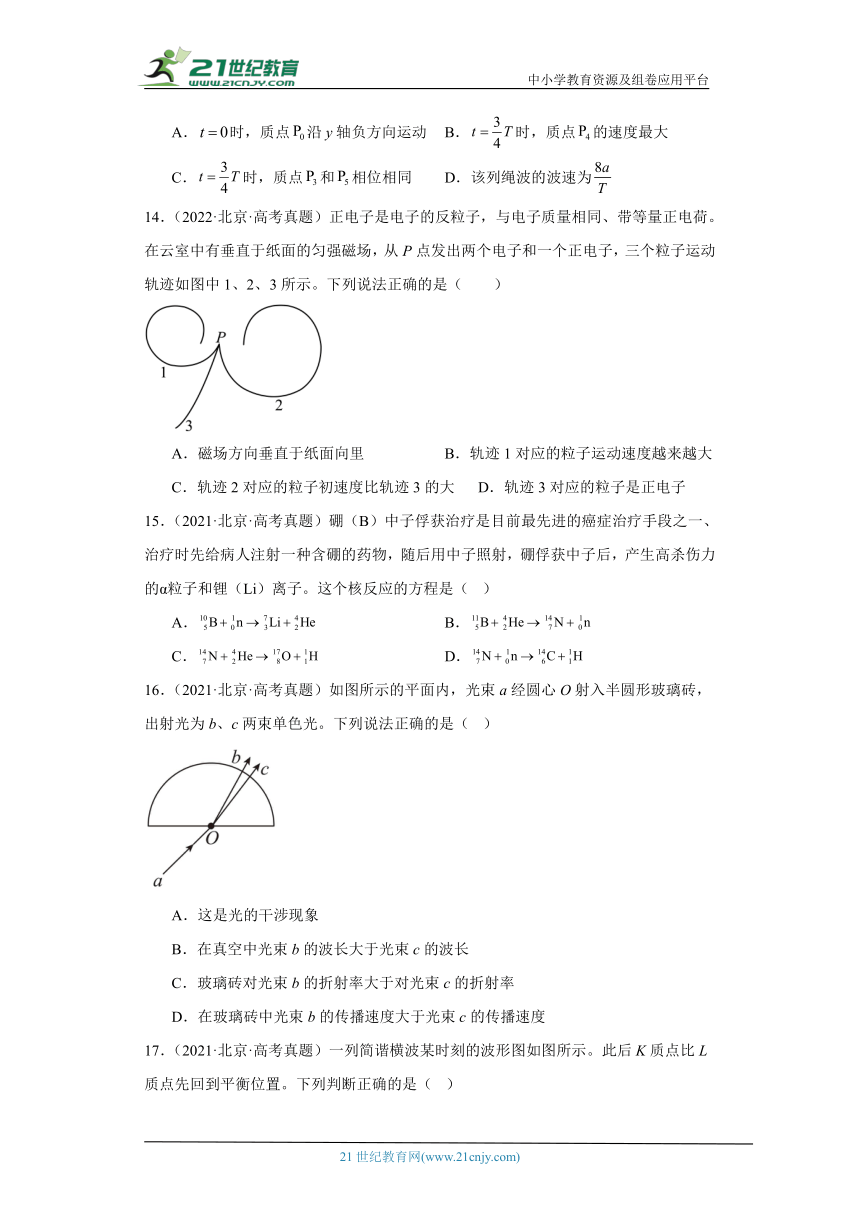 21世纪教育
WWW.21CNJY.COM
中小学教育资源及组卷应用平台
A．t=0时，质点P₀沿y轴负方向运动 B．t=3/4T时，质点P₄的速度最大
C．t=3/4T时，质点P₃和P₅相位相同 D．该列绳波的波速为8a/T
14.（2022·北京·高考真题）正电子是电子的反粒子，与电子质量相同、带等量正电荷。
在云室中有垂直于纸面的匀强磁场，从P点发出两个电子和一个正电子，三个粒子运动
轨迹如图中1、2、3所示。下列说法正确的是（ ）
P
1
2
3
A．磁场方向垂直于纸面向里 B．轨迹1对应的粒子运动速度越来越大
C．轨迹2对应的粒子初速度比轨迹3的大 D．轨迹3对应的粒子是正电子
15.（2021·北京·高考真题）硼（B）中子俘获治疗是目前最先进的癌症治疗手段之一、
治疗时先给病人注射一种含硼的药物，随后用中子照射，硼俘获中子后，产生高杀伤力
的α粒子和锂（Li）离子。这个核反应的方程是（ ）
A．¹⁰₅B+¹₀n→⁷₃Li+⁴₂He B．¹¹₅B+⁴₂He→¹⁴₇N+¹₀n
C．¹⁴₇N+⁴₂He→¹⁷₈O+¹₁H D．¹⁴₇N+¹₀n→¹⁴₆C+¹₁H
16.（2021·北京·高考真题）如图所示的平面内，光束a经圆心O射入半圆形玻璃砖，
出射光为b、c两束单色光。下列说法正确的是（ ）
b
c
O
a
A．这是光的干涉现象
B．在真空中光束b的波长大于光束c的波长
C．玻璃砖对光束b的折射率大于对光束c的折射率
D．在玻璃砖中光束b的传播速度大于光束c的传播速度
17.（2021·北京·高考真题）一列简谐横波某时刻的波形图如图所示。此后K质点比L
质点先回到平衡位置。下列判断正确的是（ ）
21世纪教育网(www.21cnjy.com)